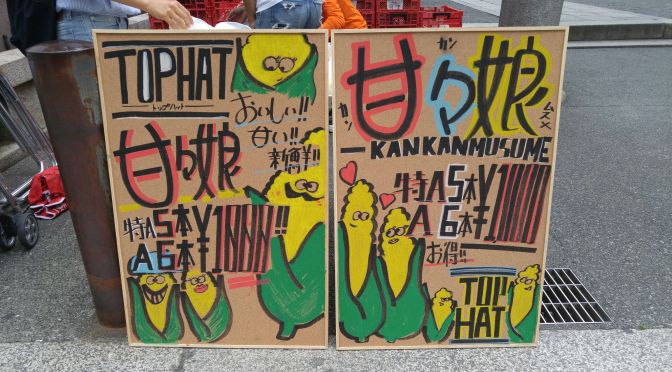 TOPHAT
トップハット
おいしい!!
甘い!!
新鮮!!
甘々娘
特A5本¥1,000!!
A6本¥1,000!!
カン
カン
甘々娘
ムスメ
KANKANMUSUME
特A5本¥1,000
A6本¥1,000
お得!!
TOP
HAT